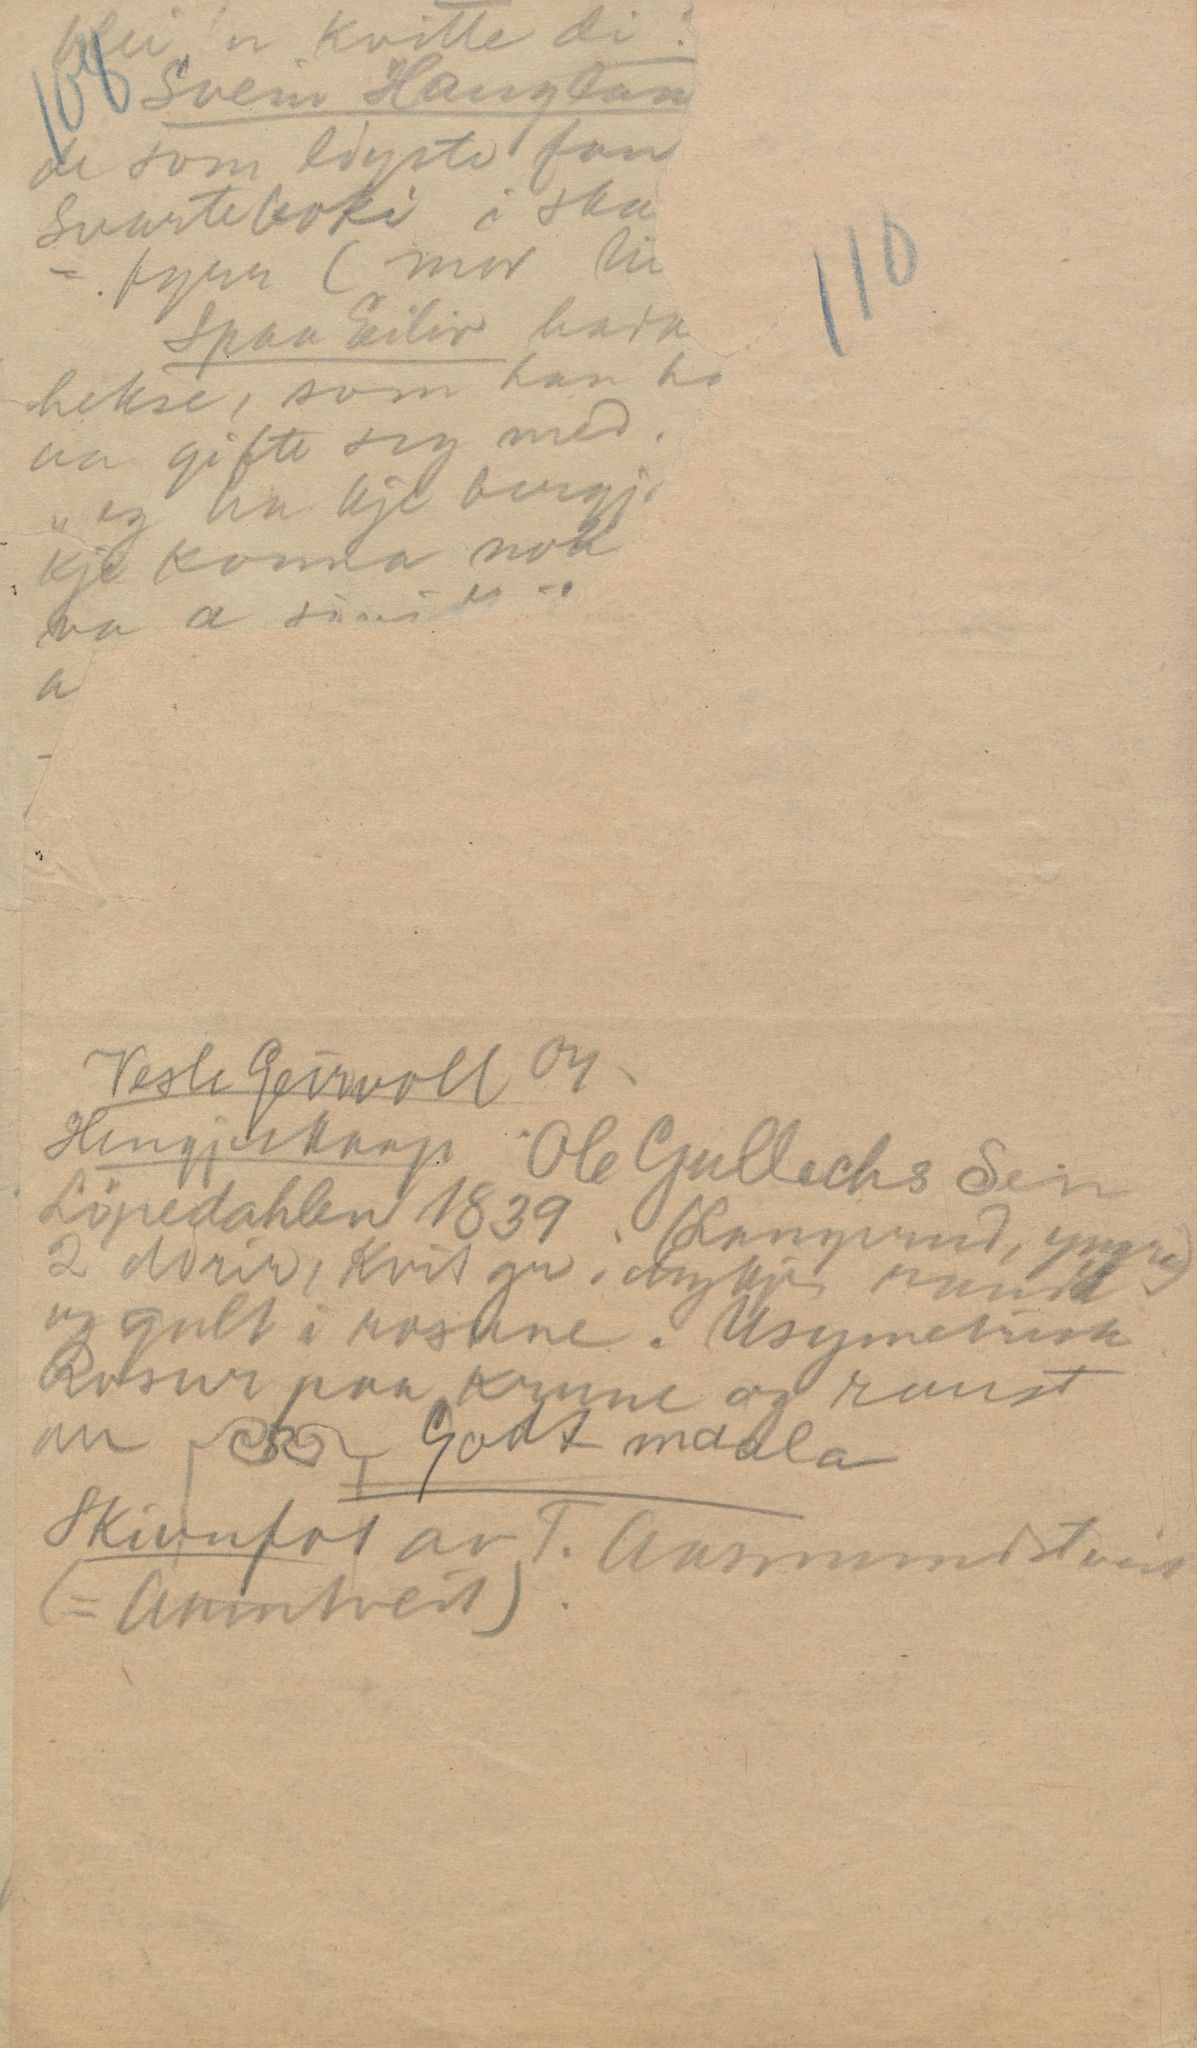 blei 'n kvitte di
108
Svein Hauglan
de som løyste fan
Svarteboki i ska
fyrr (mor
Spaa Eiliv hada
hekse, som han ha
aa gifte seg med.
"eg ha kje bergj
kje konna nok
va a
a
110
Vesle Geirvoll
Hengjeskaap Ole Gullechs Sen
Löpedahlen 1839. (Langerud, yngre)
2 dørir, Kvit gr.
og gult i rosune. Usymetrisk
Rosur paa krune og
Godt maala
Skivufot av T. Aasmundstveit
(= Aamtveit).